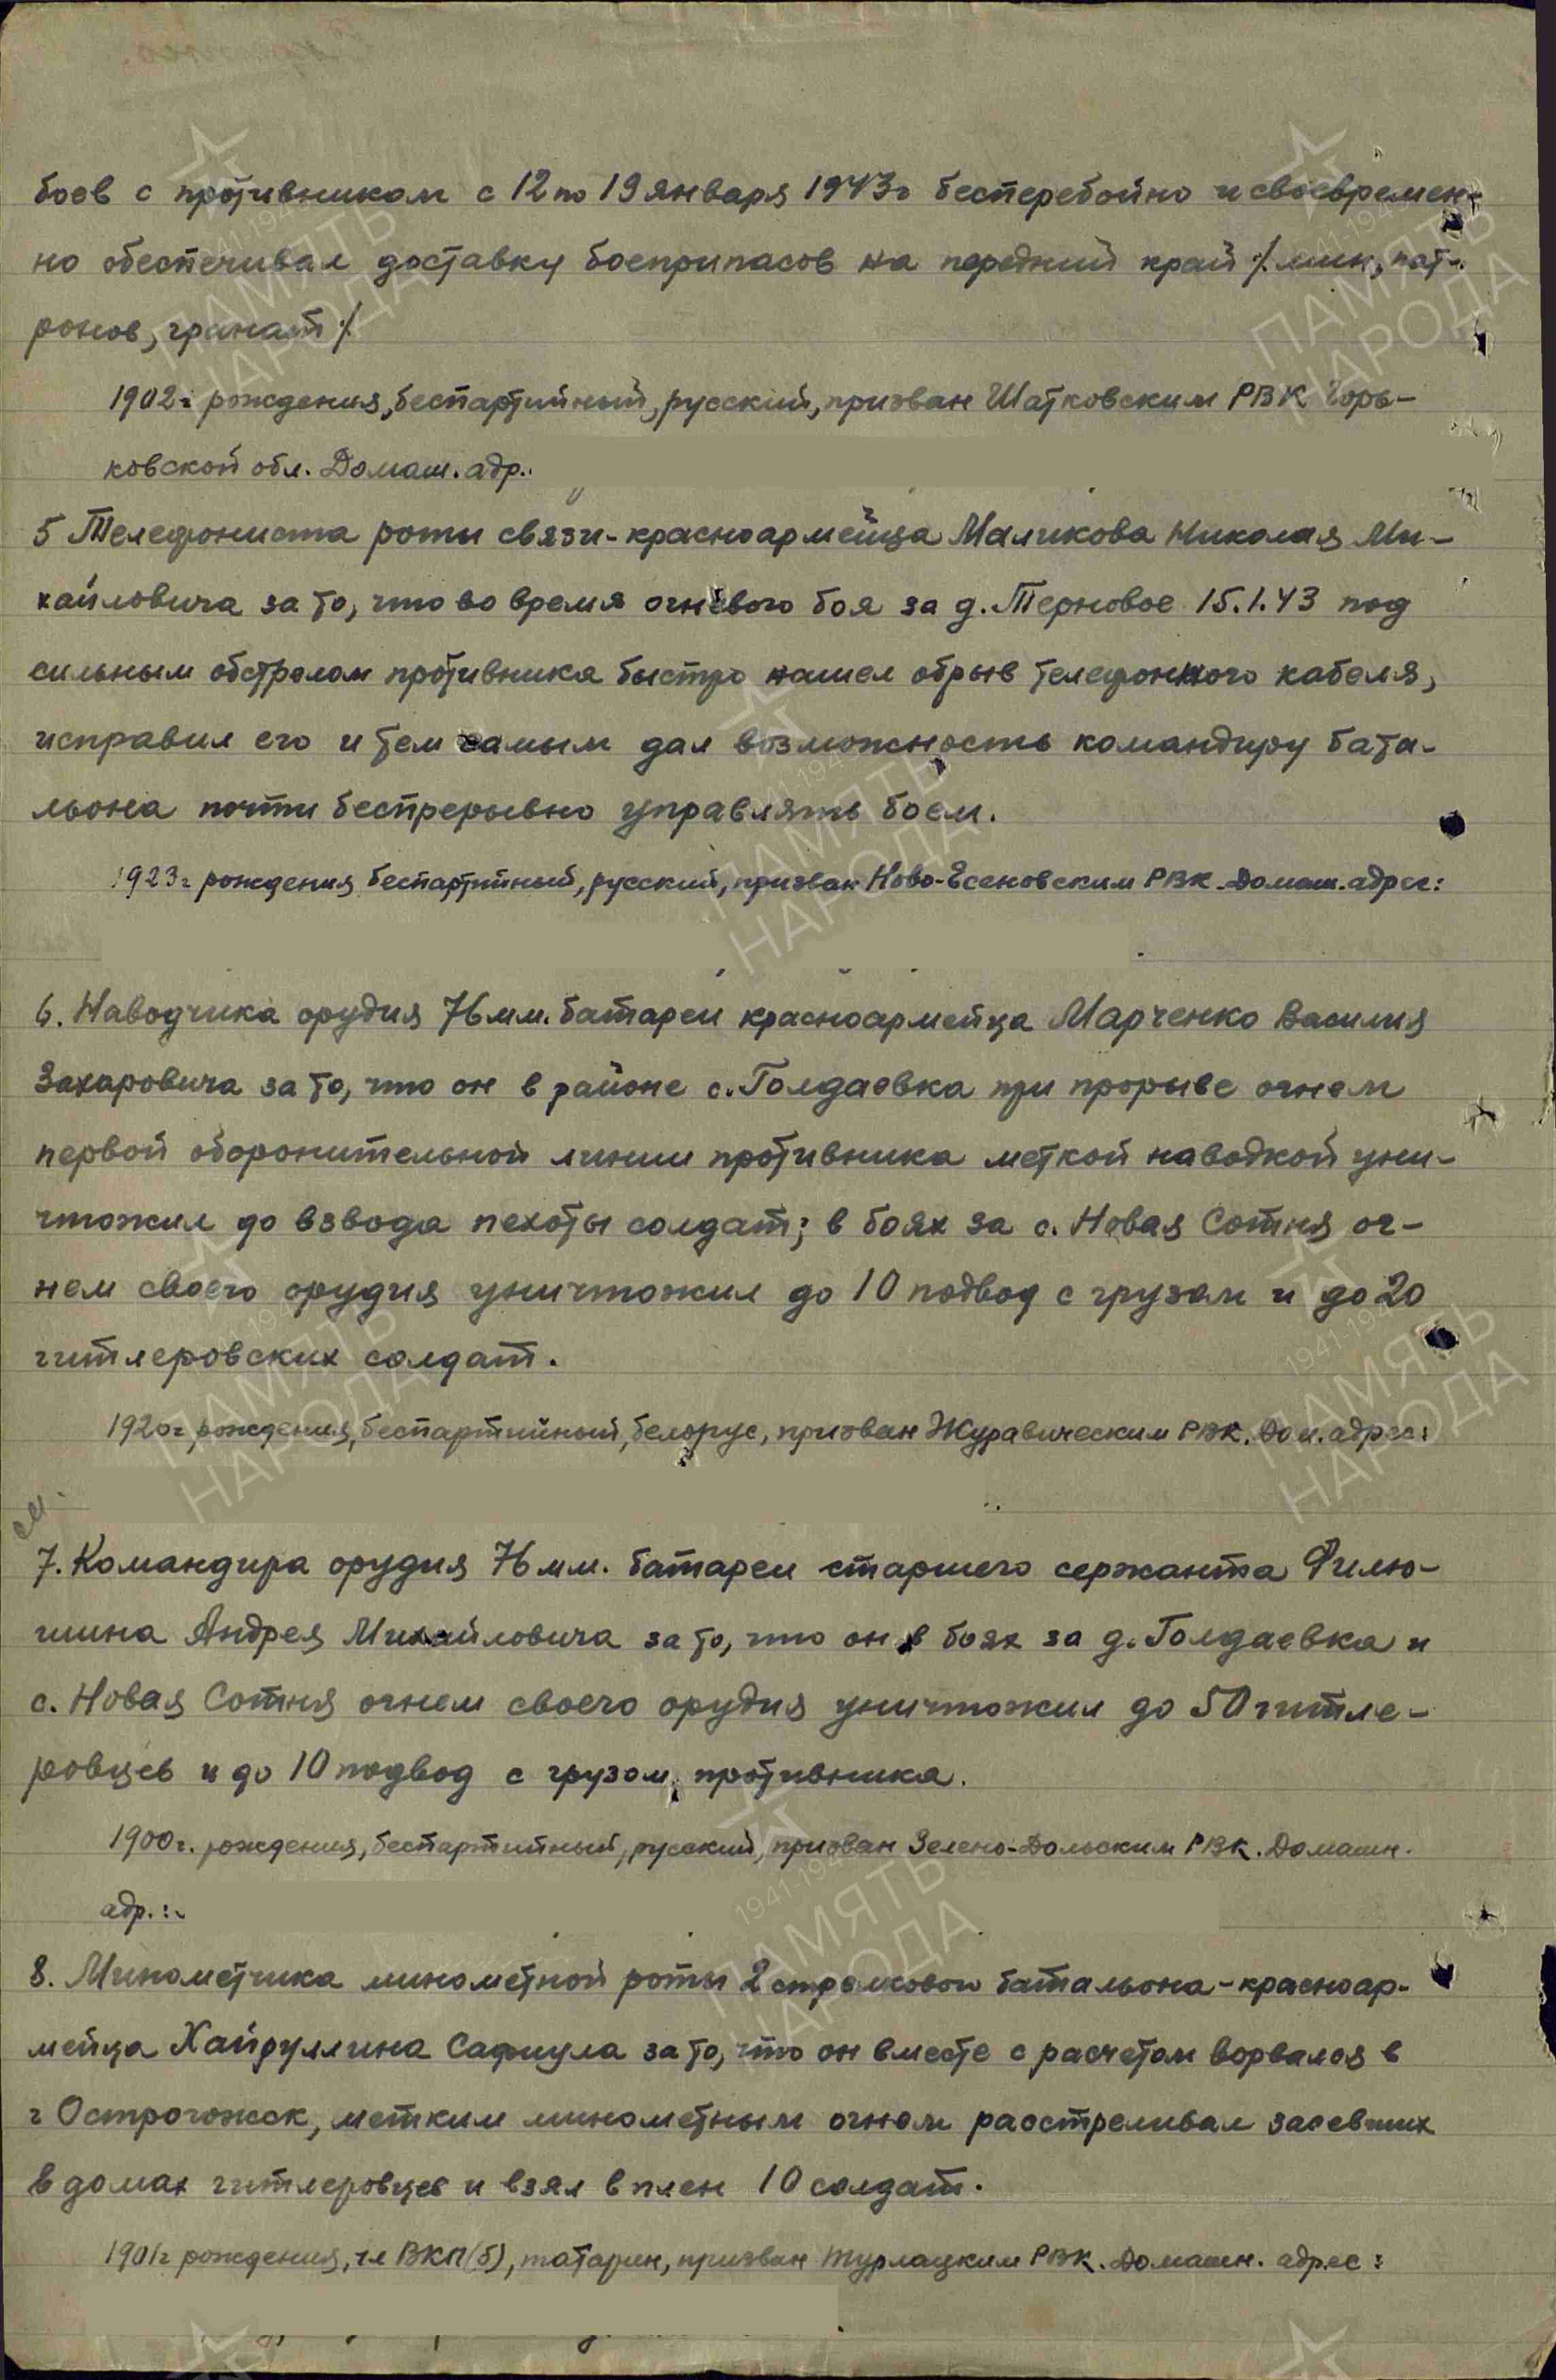 боев с противником с 12 по 19 января 1943г бесперебойно и своевремен-
но обеспечивал доставку боеприпасов на передний край /. мин, пат-
ронов, гранат ./
1902г рождения, беспартийный, русский, призван Шатковским РВК Горь-
ковской обл. Домаш. адр.:
5 Телефониста роты связи - красноармейца Маликова Николая Ми-
хайловича за то, что во время огневого боя за д. Терновое 15.1.43 под
сильным обстрелом противника быстро нашел обрыв телефонного кабеля,
исправил его и тем самым дал возможность командиру бата-
льона почти беспрерывно управлять боем.
1923г рождения, беспартийный, русский, призван Ново-Есеновским РВК. Домаш. адрес:
6. Наводчика орудия 76 мм. батареи красноармейца Марченко Василия
Захаровича за то, что он в районе с. Голдаевка при прорыве огнем
первой оборонительной линии противника меткой наводкой уни-
чтожил до взвода пехоты солдат; в боях за с. Новая Сотня ог-
нем своего орудия уничтожил до 10 подвод с грузом и до 20
гитлеровских солдат.
1920г рождения, беспартийный, белорус, призван Журавическим РВК. Дом. адрес:
7. Командира орудия 76 мм. батареи старшего сержанта Филю-
шина Андрея Михайловича за то, что он в боях за д. Голдаевка и
с. Новая Сотня огнем своего орудия уничтожил до 50 гитле-
ровцев и до 10 подвод с грузом противника.
1900г. рождения, беспартийный, русский, призван Зелено-Дольским РВК. Домашн.
адр.:
8. Минометчика минометной роты 2 стрелкового батальона - красноар-
мейца Хайруллина Сафиула за то, что он вместе с расчетом ворвался в
г Острогожск, метким минометным огнем расстреливал засевших
в домах гитлеровцев и взял в плен 10 солдат.
1901г рождения, чл ВКП(б), татарин, призван Турлацким РВК. Домашн. адрес:
ПАМЯТЬ
НАРОДА
1941-1945